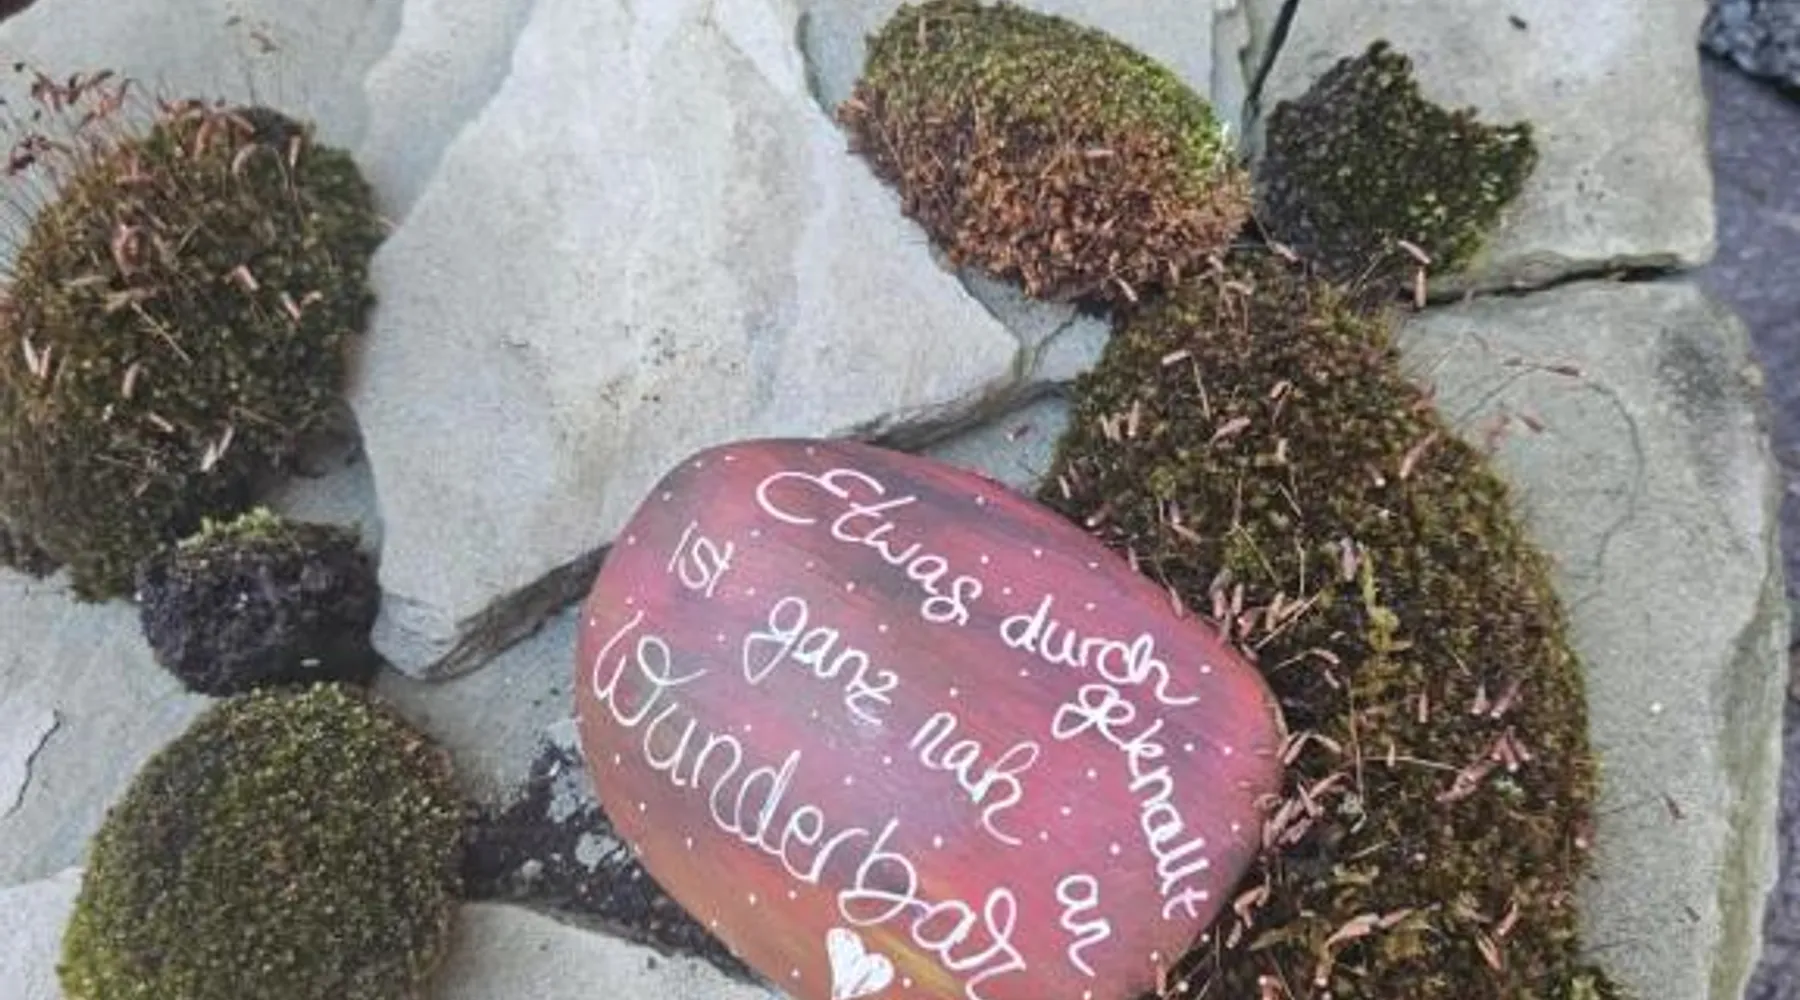 Etwas durch
geknallt
ist ganz nah an
Wunderbar